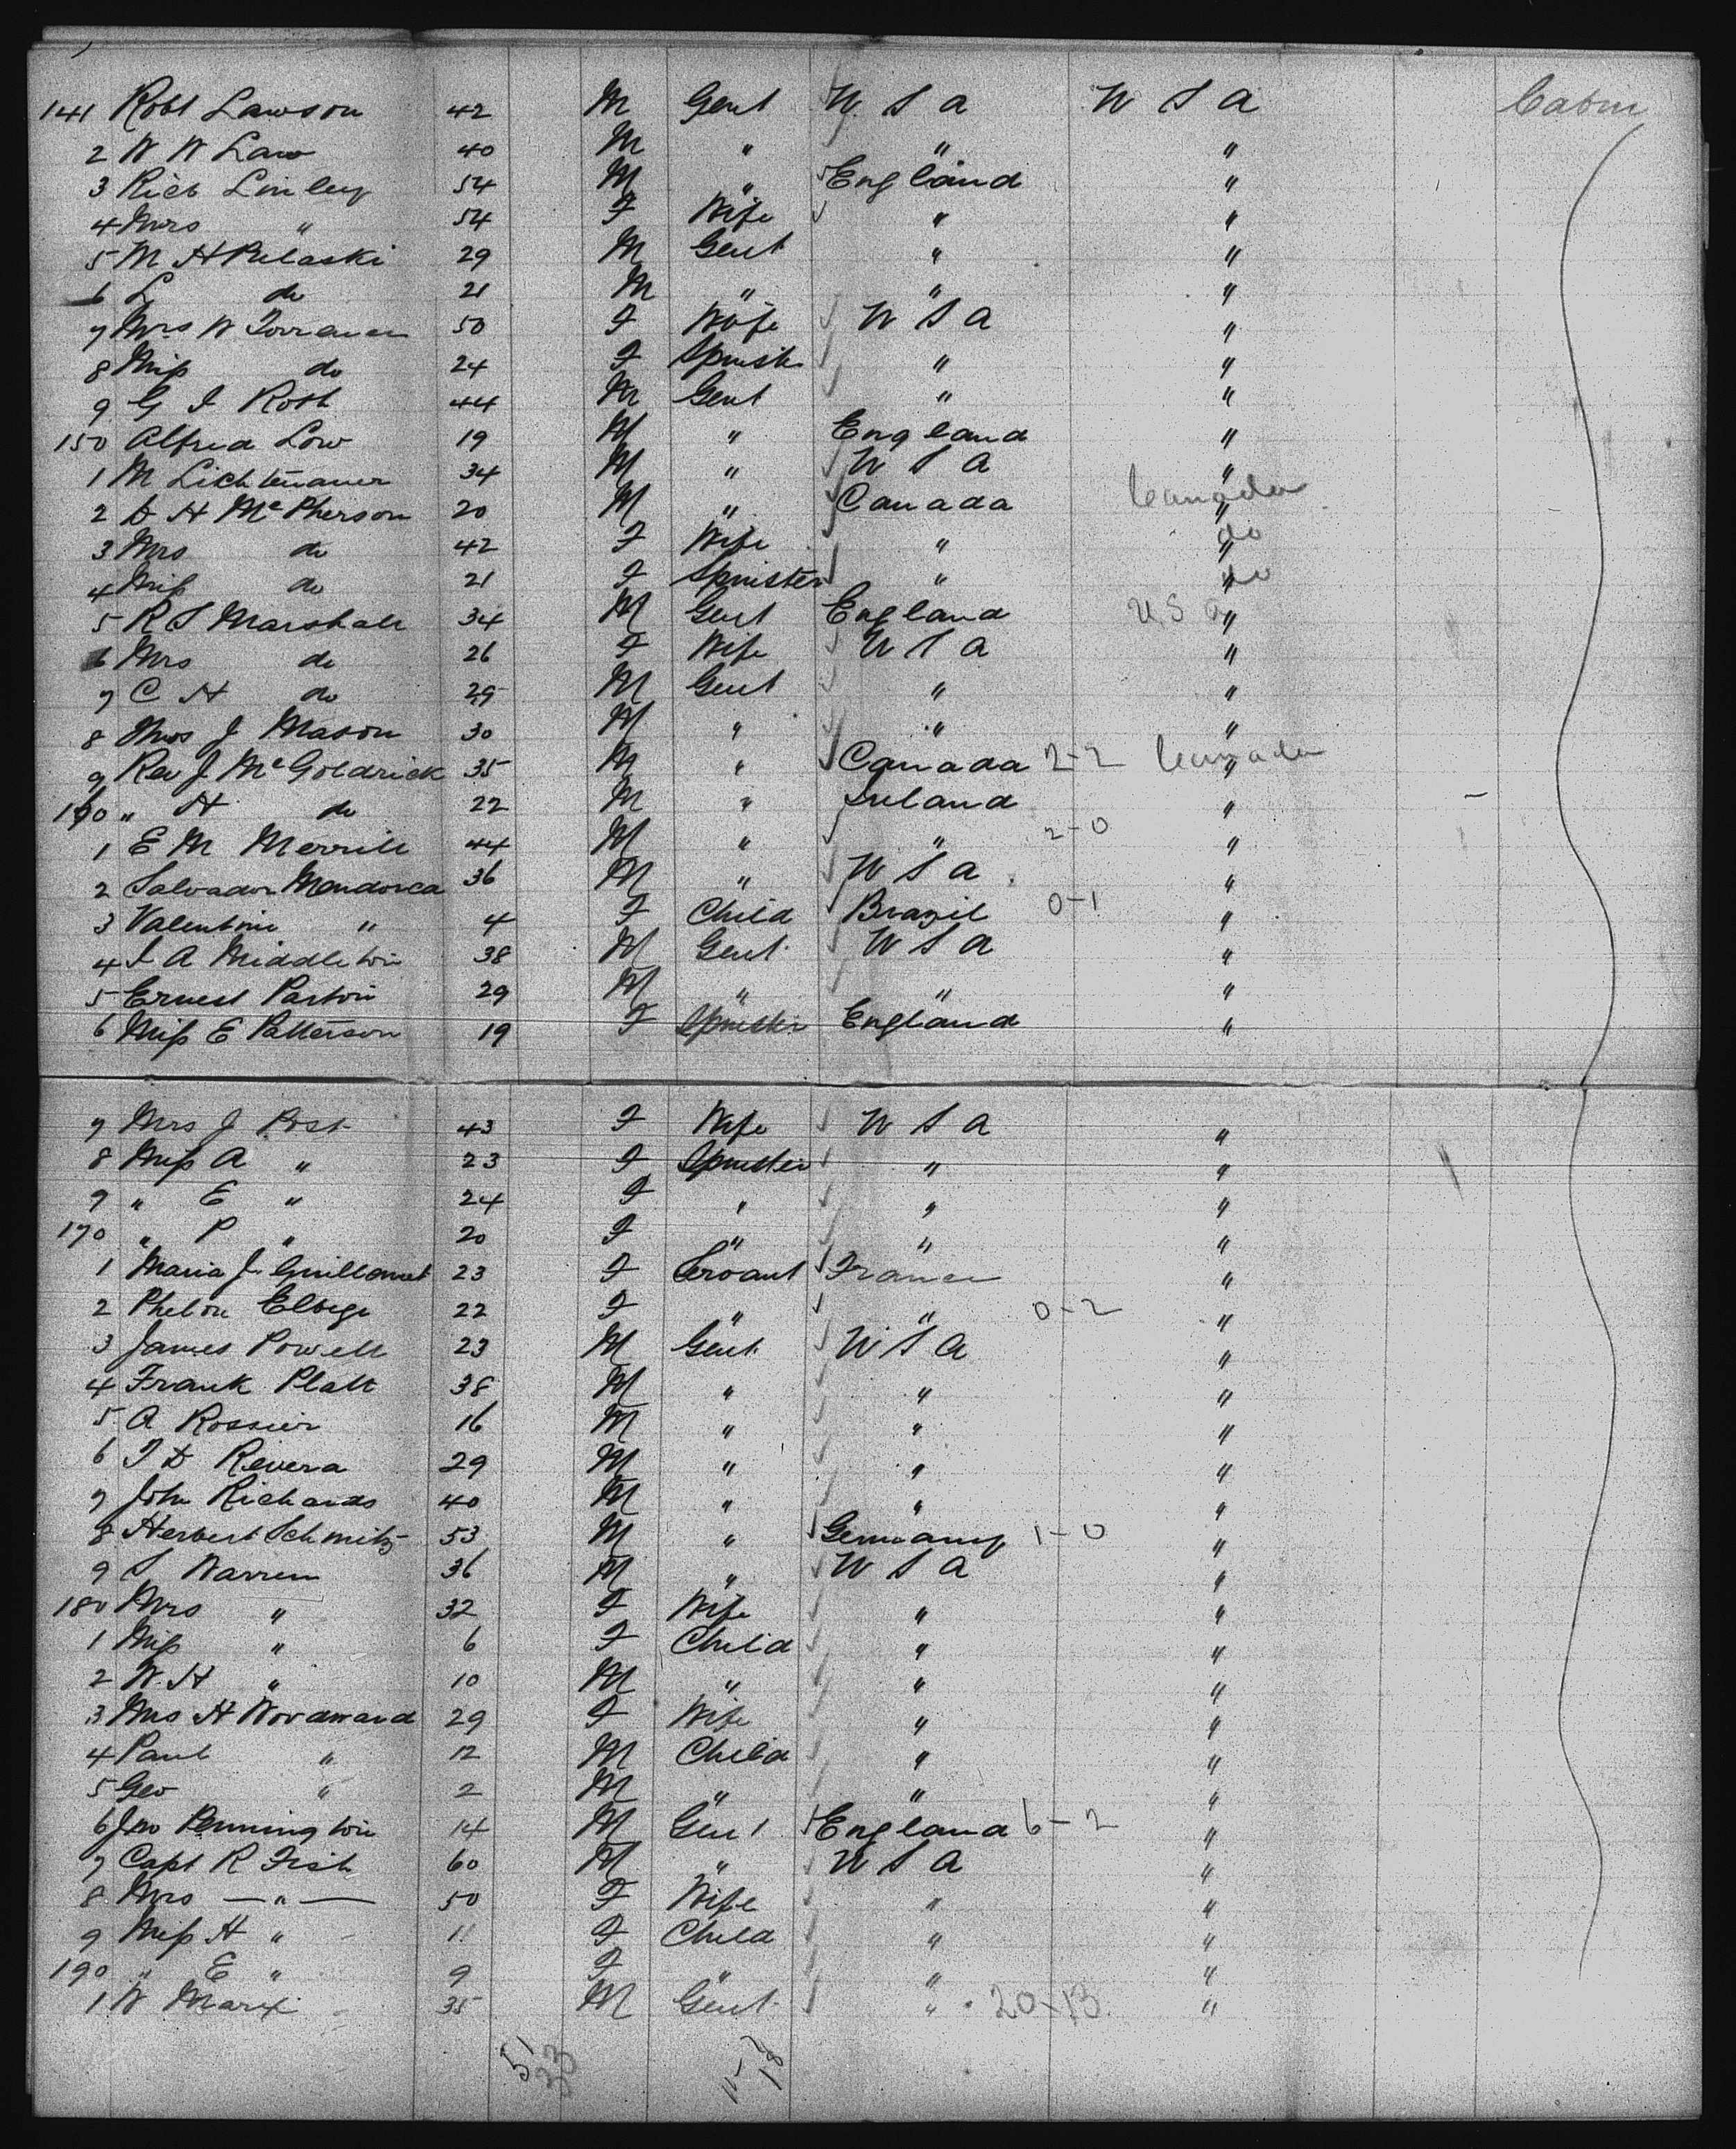 141 Robt Lawson 42 M Gent U. S A U S A Cabin
2 W W Law 40 M " " "
3 Rich Linley 54 M " England "
4 Mrs " 54 F Wife " "
5 M H Pulaski 29 M Gent " "
6 L do 21 M " " "
7 Mrs W Torrance 50 F Wife U S A "
8 Miss do 24 F Spinster " "
9 G I Roth 44 M Gent " "
150 Alfred Low 19 M " England "
1 M Lichtenauer 34 M " U S A "
2 D H McPherson 20 M " Canada " Canada
3 Mrs do 42 F Wife " " do
4 Miss do 21 F Spinster " " do
5 R S Marshall 34 M Gent England " U S a
6 Mrs do 26 F Wife U S A "
7 C H do 29 M Gent " "
8 Thos J Mason 30 M " " "
9 Rev J McGoldrick 35 M " Canada 2-2 Canada "
160 " H do 22 M " Ireland "
1 E M Merrill 44 M " " 2-0 "
2 Salvador Mendonca 36 M " U S A "
3 Valentine " 4 F Child Brazil 0-1 "
4 I A Middleton 38 M Gent U S A "
5 Ernest Parton 29 M " " "
6 Miss E Patterson 19 F Spinster England "
7 Mrs J Post 43 F Wife U S A "
8 Miss A " 23 F Spinster " "
9 " E " 24 F " " "
170 " P " 20 F " " "
1 Maria J Guillomet 23 F Servant France "
2 22 F " " 0-2 "
3 James Powell 23 M Gent U S A "
4 Frank Platt 38 M " " "
5 A Rossier 16 M " " "
6 T D Rivera 29 M " " "
7 John Richards 40 M " " "
8 Herbert Schmitz 53 M " Germany 1-0 "
9 S Warren 36 M " U S A "
180 Mrs " 32 F Wife " "
1 Miss " 6 F Child " "
2 W. H " 10 M " " "
3 Mrs H Woodward 29 F Wife " "
4 Paul " 12 M Child " "
5 Geo " 2 M " " "
6 Jno Pennington 14 M Gent England 6-2 "
7 Capt R Fish 60 M " U S A "
8 Mrs — " — 50 F Wife " "
9 Miss H " 11 F Child " "
190 " E " 9 F " " "
1 W Marx 35 M Gent " 20-13 "
51
33
15
18